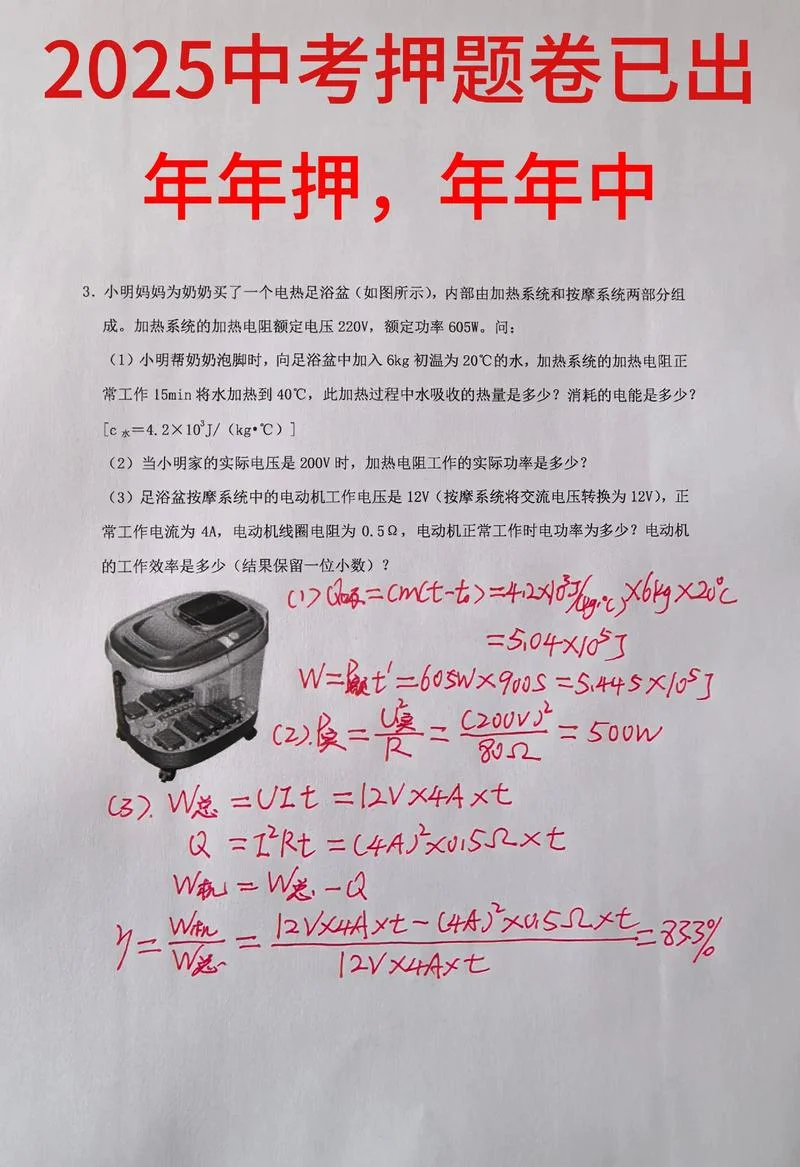 2025中考押题卷已出
年年押，年年中
3. 小明妈妈为奶奶买了一个电热足浴盆（如图所示），内部由加热系统和按摩系统两部分组
成。加热系统的加热电阻额定电压 220V，额定功率 605W。问：
（1）小明帮奶奶泡脚时，向足浴盆中加入 6kg 初温为 20℃的水，加热系统的加热电阻正
常工作 15min 将水加热到 40℃，此加热过程中水吸收的热量是多少？消耗的电能是多少？
[c水＝4.2×10³J/（kg•℃）]
（2）当小明家的实际电压是 200V 时，加热电阻工作的实际功率是多少？
（3）足浴盆按摩系统中的电动机工作电压是 12V（按摩系统将交流电压转换为 12V），正
常工作电流为 4A，电动机线圈电阻为 0.5Ω，电动机正常工作时电功率为多少？电动机
的工作效率是多少（结果保留一位小数）？
(1) Q吸=cm(t-t₀)=4.2×10³J/(kg·℃)×6kg×20℃
=5.04×10⁵J
W=P额t'=605W×900S=5.445×10⁵J
(2). P实=U实²/R=(200V)²/80Ω=500W
(3). W总=UIt=12V×4A×t
Q=I²Rt=(4A)²×0.5Ω×t
W机=W总-Q
η=W机/W总=12V×4A×t-(4A)²×0.5Ω×t/12V×4A×t=83.3%